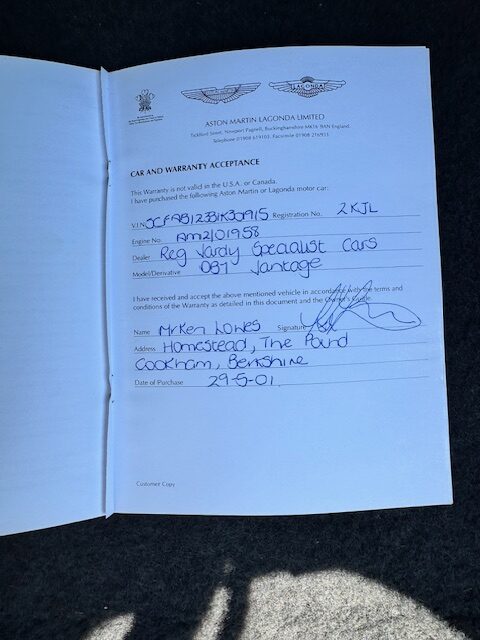 LAGONDA
ASTON MARTIN LAGONDA LIMITED
Tickford Street, Newport Pagnell, Buckinghamshire MK16 9AN England.
Telephone 01908 619103 Facsimile 01908 216935
CAR AND WARRANTY ACCEPTANCE
This Warranty is not valid in the U.S.A. or Canada.
I have purchased the following Aston Martin or Lagonda motor car:
V.I.N. Registration No. 2 KJL
Engine No. AM2/01958
Dealer Reg Vardy Specialist Cars
Model/Derivative DB7 Vantage
I have received and accept the above mentioned vehicle in accordance with the terms and
conditions of the Warranty as detailed in this document and the Owner's Guide.
Name Mr Ken Lowes Signature
Address Homestead, The Pound
Cookham, Berkshire
Date of Purchase 29-5-01
Customer Copy